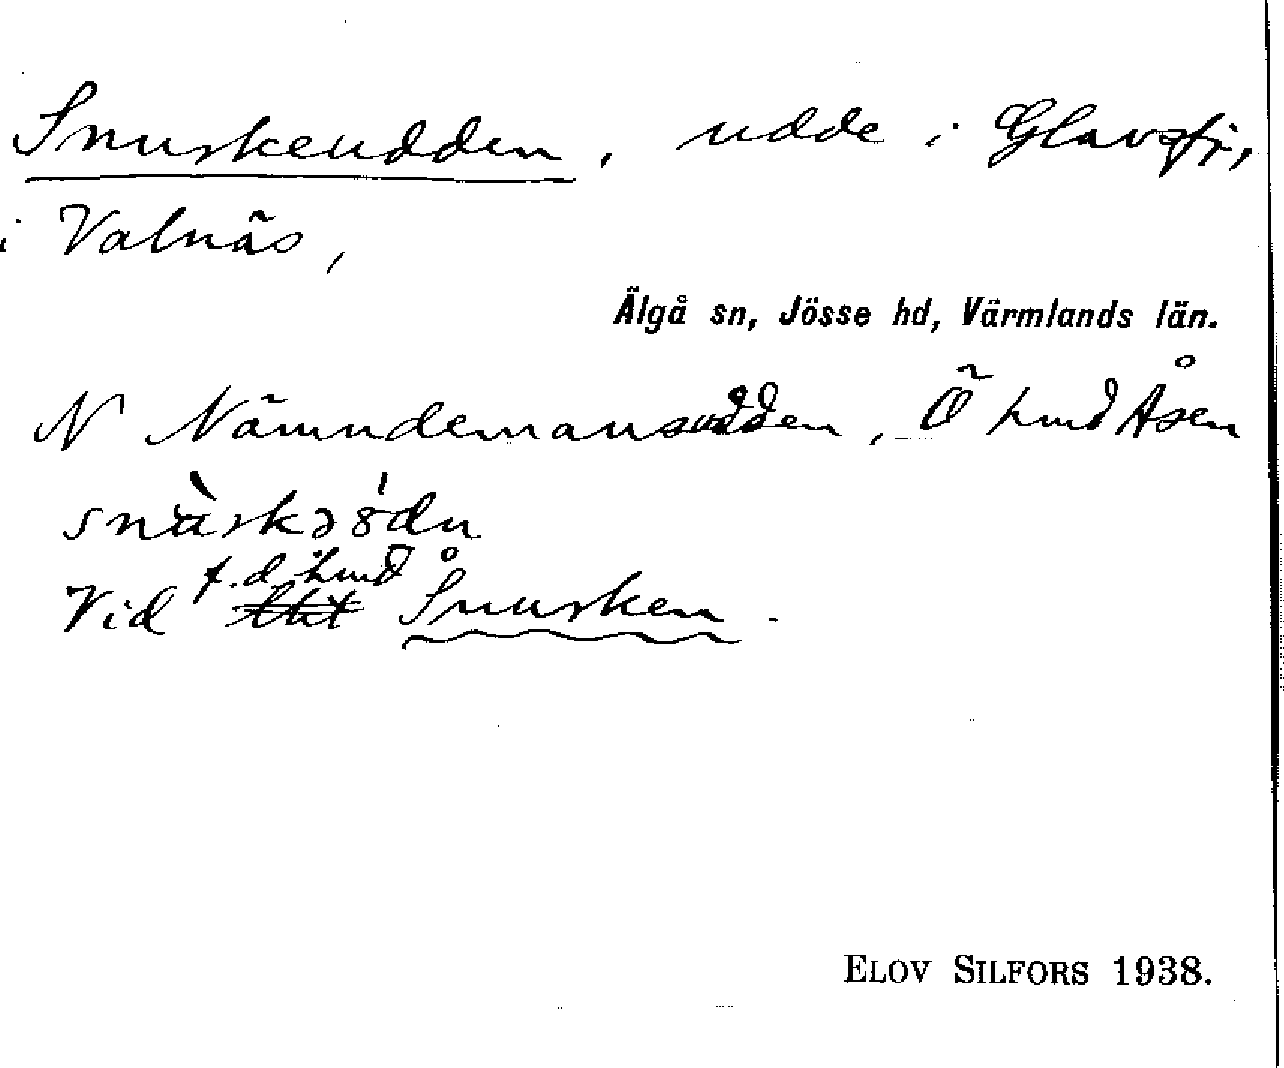 Snuskeudden, udde i Glavsfj.,
i Valnäs,
Älgå sn, Jösse hd, Värmlands län.
N Nämndemansudden, Ö hmd Åsen
f.d. hmd
Vid Snusken.
ELOV SILFORS 1938.